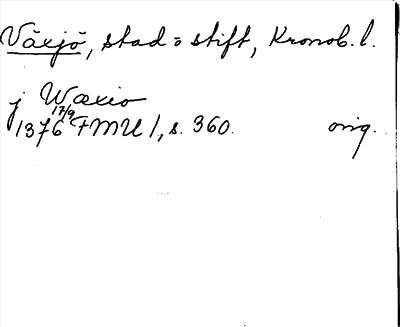 Växjö, stad o stift, Kronob. l.
j Wæxio
1376 17/9 FMU 1, s. 360. orig.